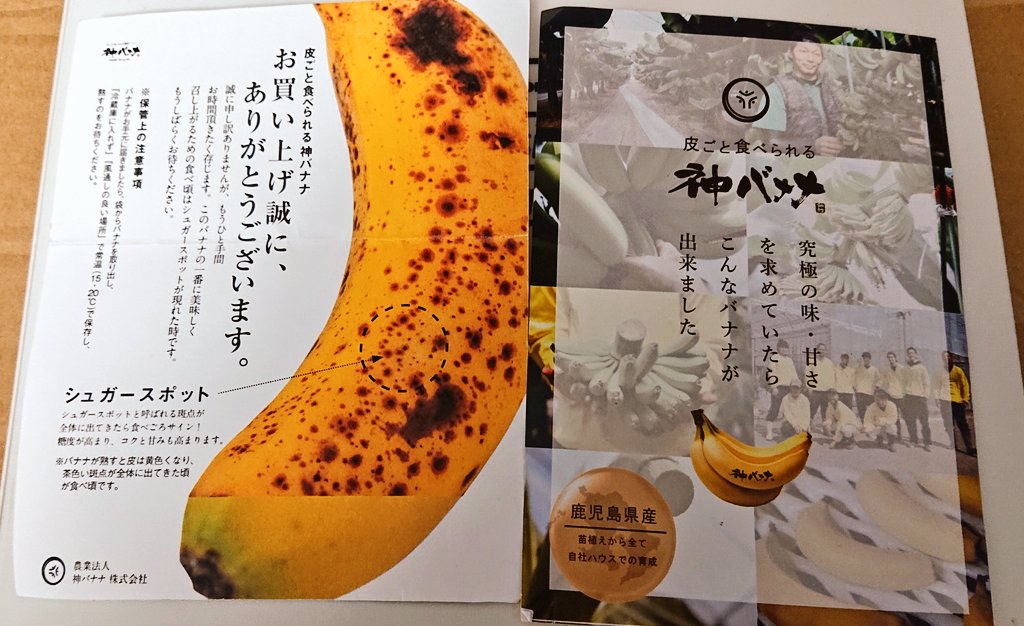 神バナナ
皮ごと食べられる 神バナナ
お買い上げ誠に、
ありがとうございます。
誠に申し訳ありませんが、もうひと手間
お時間頂きたく存じます。このバナナの一番に美味しく
召し上がるための食べ頃はシュガースポットが現れた時です。
もうしばらくお待ちください。
※保管上の注意事項
バナナがお手元に届きましたら、袋からバナナを取り出し、
「冷蔵庫に入れず」「風通しの良い場所」で常温(15-20℃)で保存し、
熟すのをお待ちください。
シュガースポット
シュガースポットと呼ばれる斑点が
全体に出てきたら食べごろサイン!
糖度が高まり、コクと甘みも高まります。
※バナナが熟すと皮は黄色くなり、
茶色い斑点が全体に出てきた頃
が食べ頃です。
農業法人
神バナナ 株式会社
皮ごと食べられる
神バナナ
究極の味・甘さ
を求めていたら
こんなバナナが
出来ました
神バナナ
鹿児島県産
苗植えから全て
自社ハウスでの育成